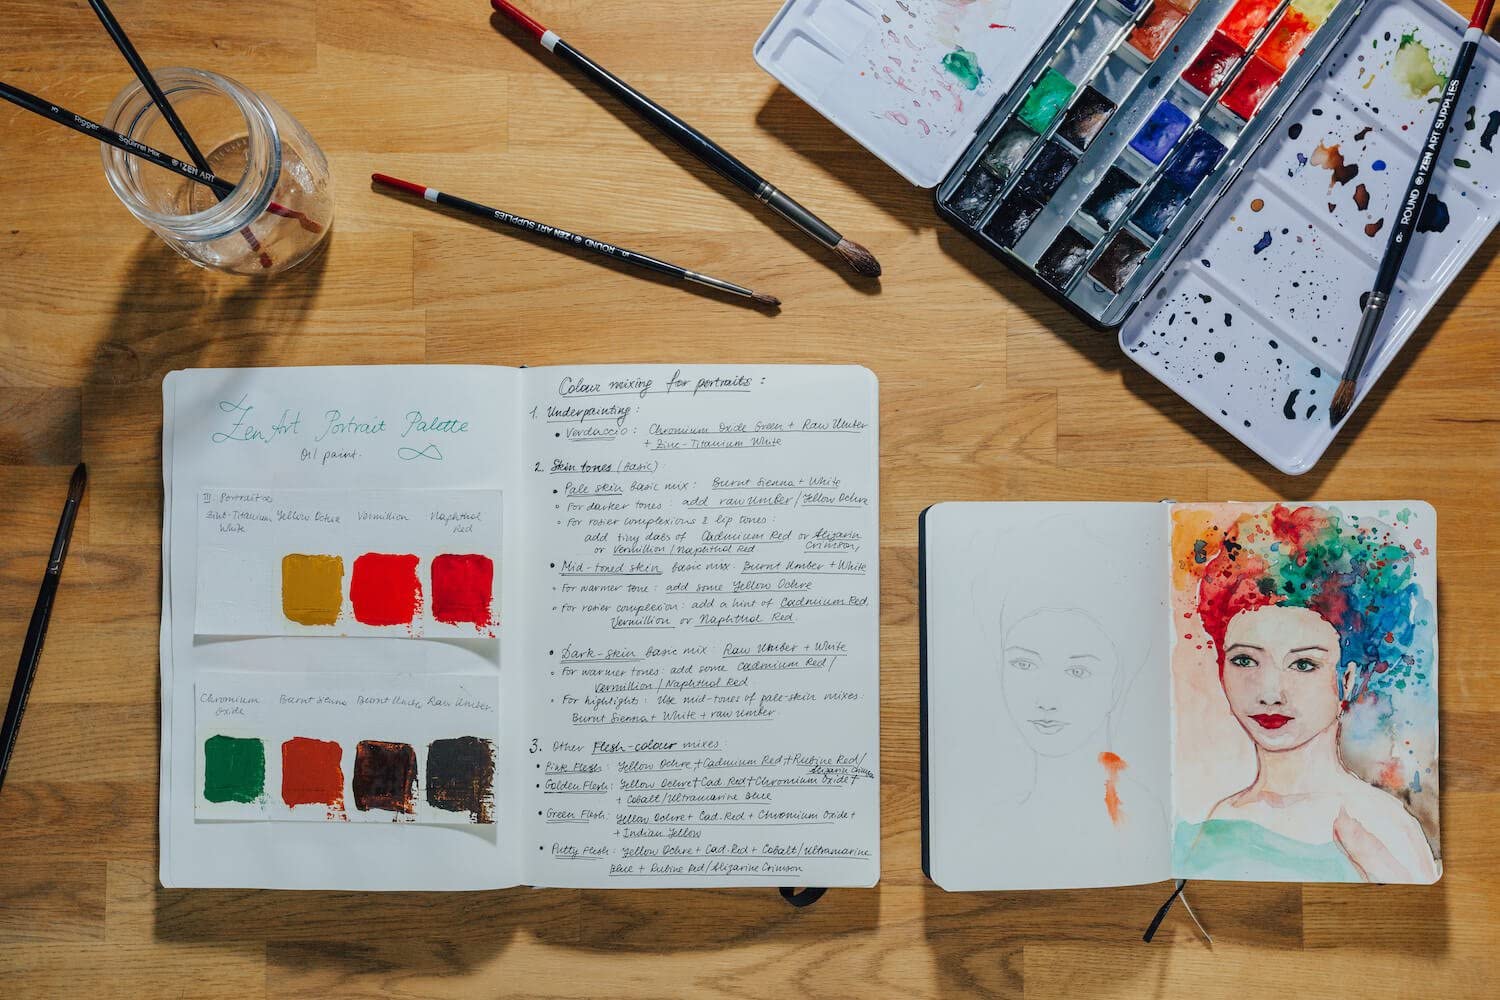 3 Rigger Squirrel Mix ZEN ART
ROUND ZEN ART SUPPLIES
8 ROUND ZEN ART SUPPLIES
ZenArt Portrait Palette
Oil paint.
III. Portraits
Zinc-Titanium White
Yellow Ochre
Vermillion
Naphthol Red
Chromium Oxide
Burnt Sienna
Burnt Umber
Raw Umber
Colour mixing for portraits:
1. Underpainting:
• Verdaccio: Chromium Oxide Green + Raw Umber
+ Zinc-Titanium White
2. Skin tones (Basic):
• Pale skin basic mix: Burnt Sienna + White
◦ For darker tones: add raw Umber/Yellow Ochre
◦ For rosier complexions & lip tones:
add tiny dabs of Cadmium Red or Alizarin Crimson,
or Vermillion/Naphthol Red
• Mid-toned skin basic mix: Burnt Umber + White
◦ For warmer tone: add some Yellow Ochre
◦ For rosier complexion: add a hint of Cadmium Red,
Vermillion or Naphthol Red.
• Dark-skin basic mix: Raw Umber + White
◦ For warmer tones: add some Cadmium Red/
Vermillion/Naphthol Red
• For highlights: Use mid-tones of pale-skin mixes:
Burnt Sienna + White + raw Umber.
3. Other Flesh-colour mixes:
• Pink Flesh: Yellow Ochre + Cadmium Red + Rubine Red/
Alizarin Crimson
• Golden Flesh: Yellow Ochre + Cad. Red + Chromium Oxide +
+ Cobalt/Ultramarine Blue
• Green Flesh: Yellow Ochre + Cad. Red + Chromium Oxide +
+ Indian Yellow
• Putty Flesh: Yellow Ochre + Cad. Red + Cobalt/Ultramarine
Blue + Rubine Red/Alizarine Crimson